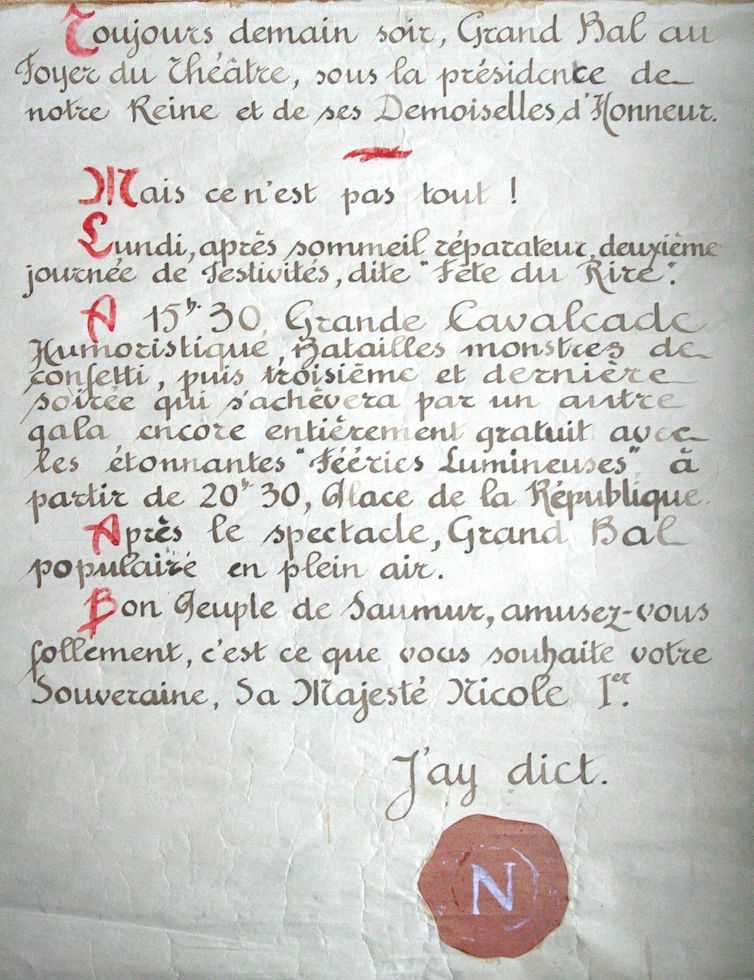 Toujours demain soir, Grand Bal au
Foyer du Théâtre, sous la présidence de
notre Reine et de ses Demoiselles d'Honneur.
Mais ce n'est pas tout !
Lundi, après sommeil réparateur, deuxième
journée de Festivités, dite "Fête du Rire".
A 15h.30, Grande Cavalcade
Humoristique, Batailles monstres de
confetti, puis troisième et dernière
soirée qui s'achèvera par un autre
gala, encore entièrement gratuit avec
les étonnantes "Féeries Lumineuses", à
partir de 20h 30, Place de la République.
Après le spectacle, Grand Bal
populaire en plein air.
Bon Peuple de Saumur, amusez-vous
follement, c'est ce que vous souhaite votre
Souveraine, Sa Majesté Nicole Ier.
J'ay dict.
N